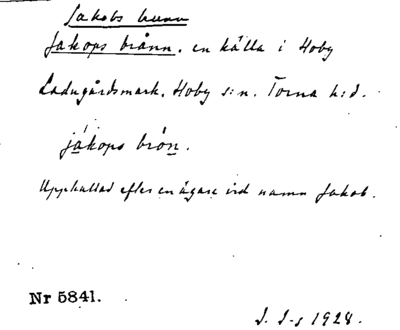 Jakobs brunn
Jakops brånn. en källa i Hoby
Ladugårdsmark. Hoby s:n. Torna h:d.
jákops brón.
Uppkallad efter en ägare vid namn Jakob.
Nr 5841.
1928.